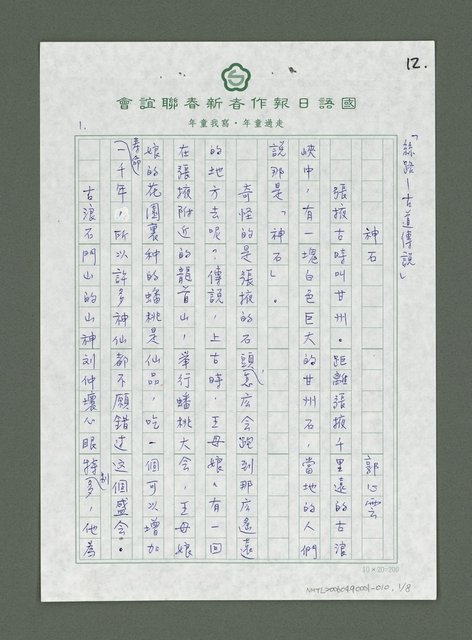 12.
國語日報作者新春聯誼會
走過童年・寫我童年
1.
「絲路—古道傳說」
神石
郭心雲
張掖古時叫甘州。距離張掖千里遠的古浪
峽中，有一塊白色巨大的甘州石，當地的人們
說那是「神石」。
奇怪的是張掖的石頭怎麼會跑到那麼遙遠
的地方去呢？傳說，上古時，王母娘娘有一回
在張掖附近的龍首山，舉行蟠桃大會，王母娘
娘的花園裏种的蟠桃是仙品，吃一個可以增加
壽命一千年，所以許多神仙都不願錯过这個盛会。
古浪石門山的山神刘仲壞心眼特別多，他為
10×20=200
NMTL20060490001-010, 1/8